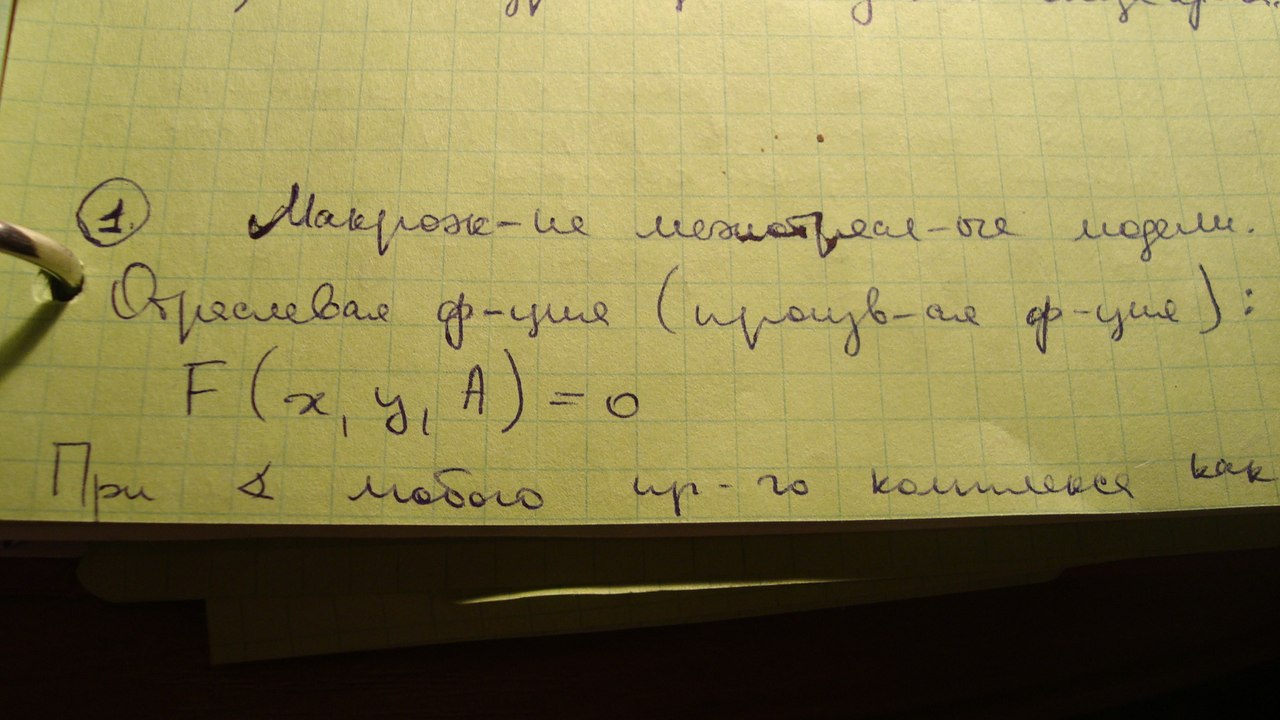 1. Макроэк-ие межотрасл-ые модели.
Отраслевая ф-ция (произв-ая ф-ция):
F(x, y, A) = 0
При ∡ любого пр-го комплекса как